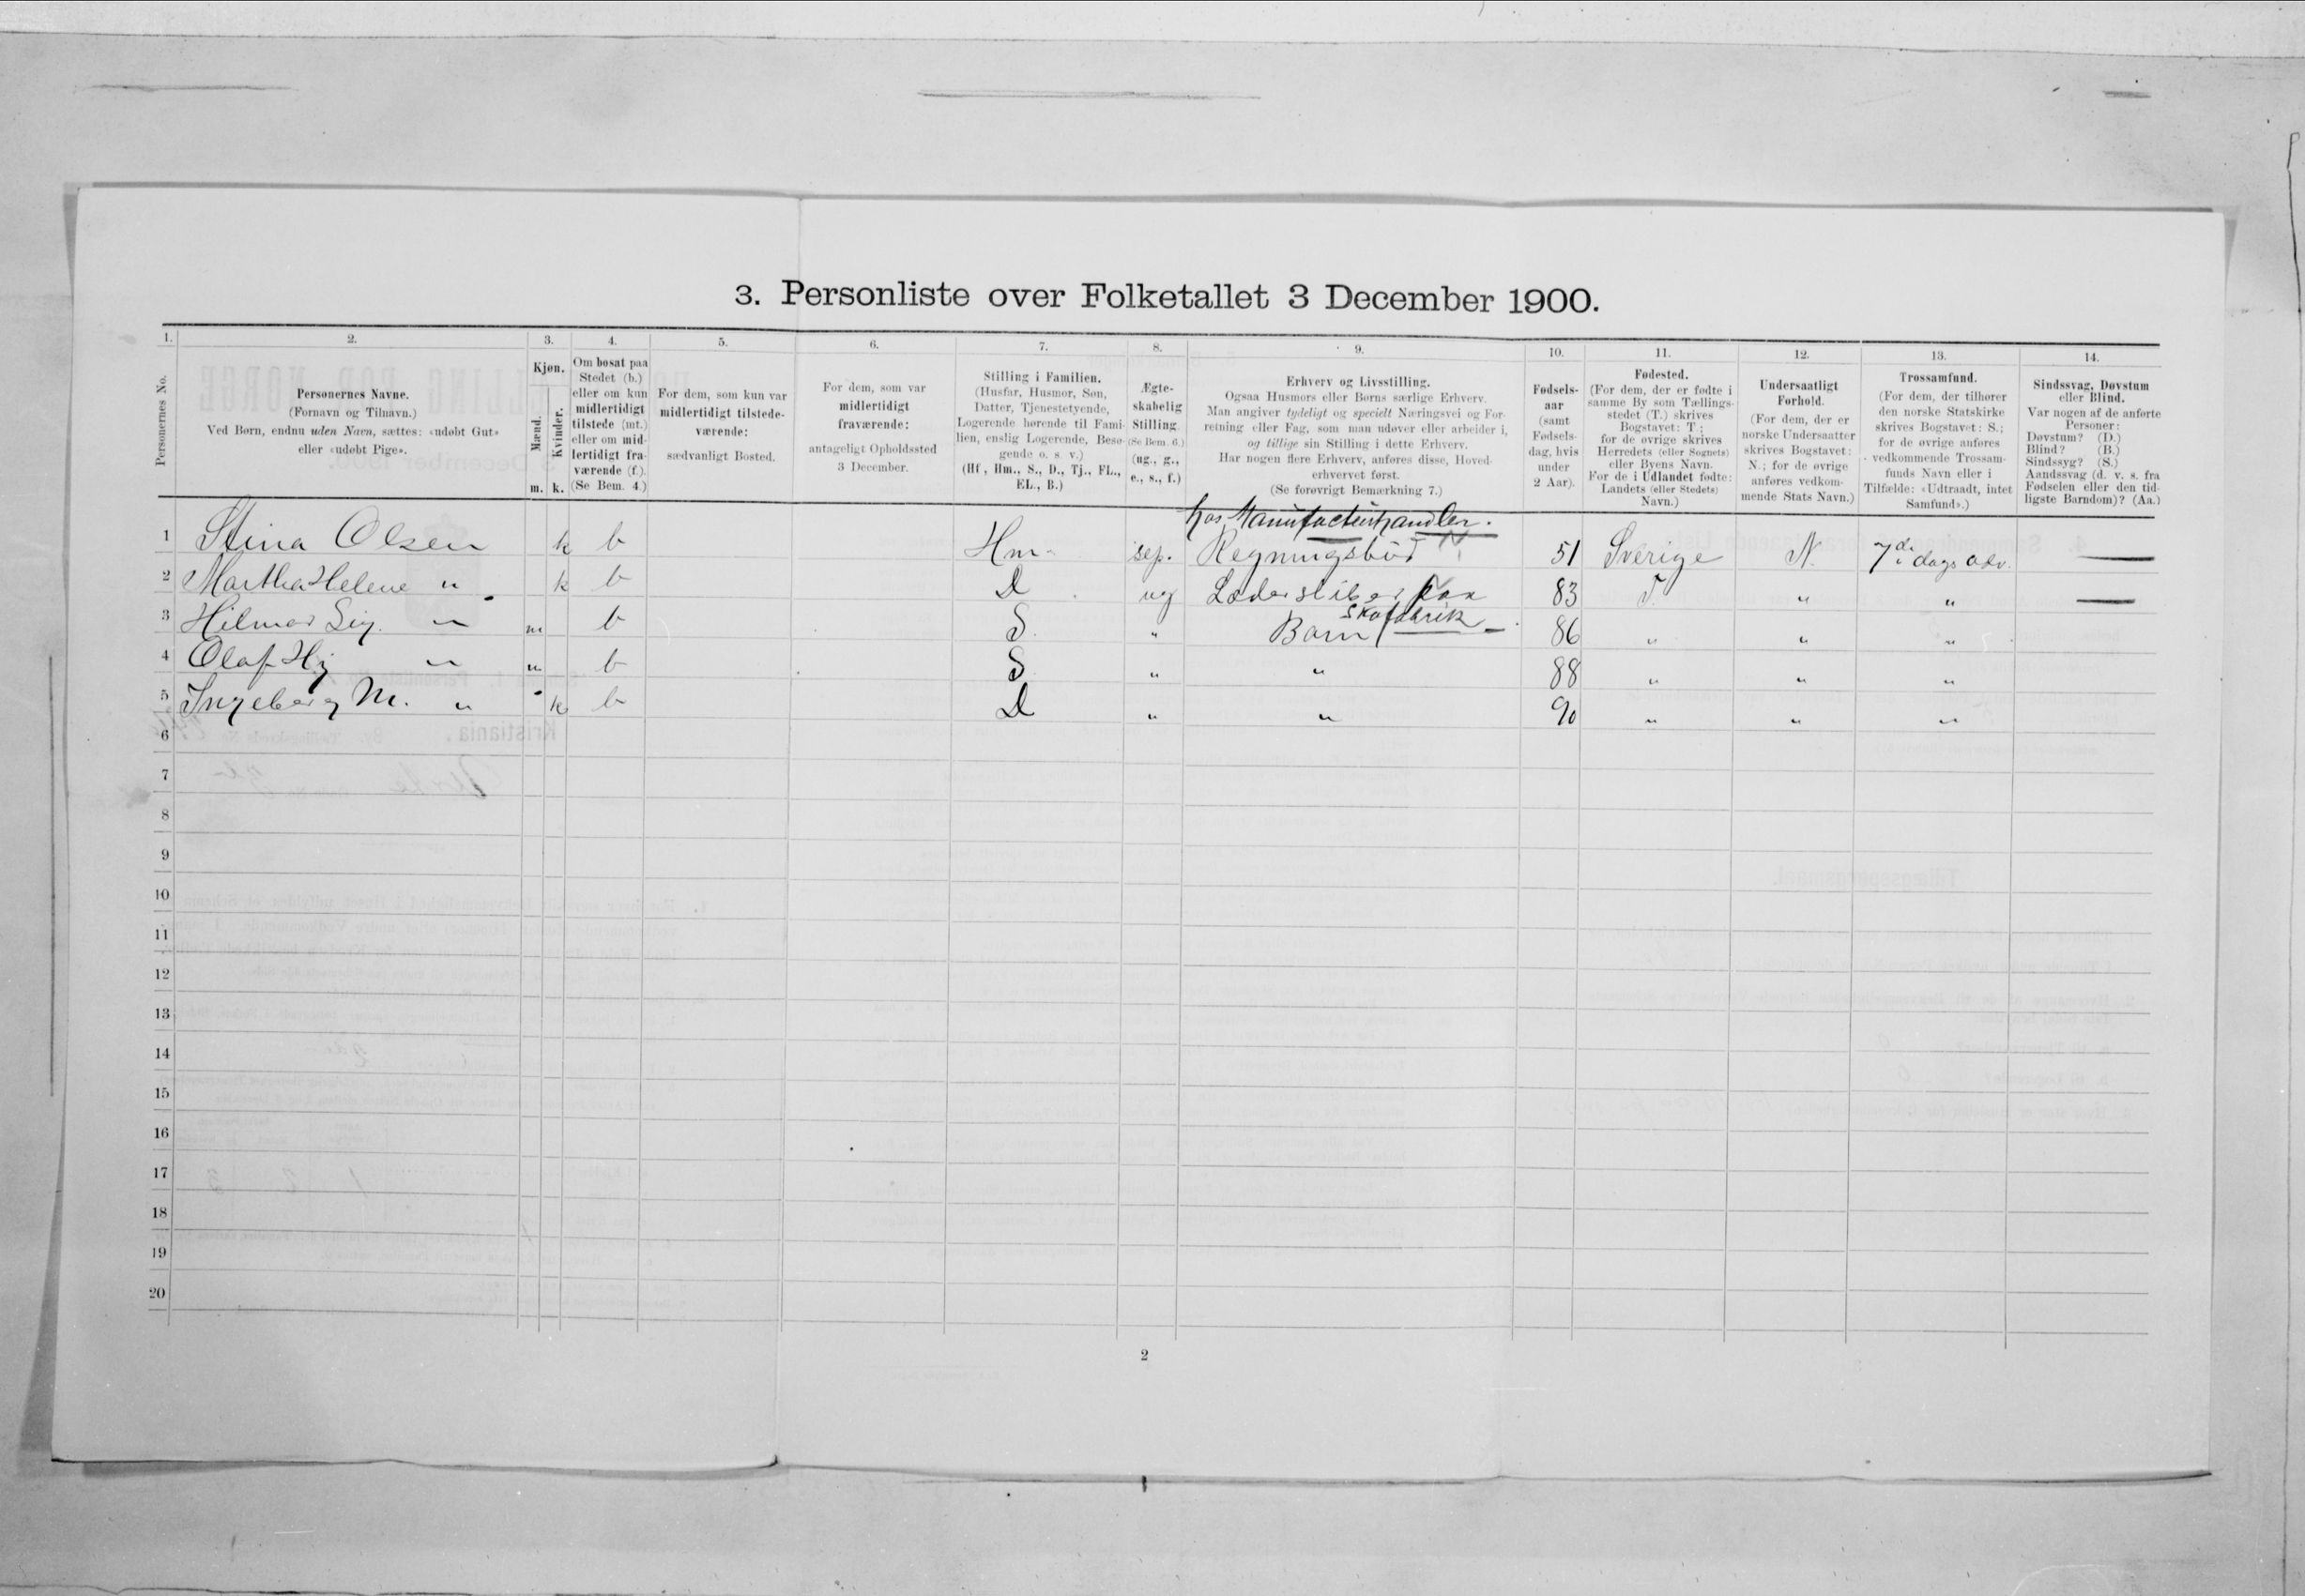 3. Personliste over Folketallet 3 December 1900.
1. 2. 3. 4. 5. 6. 7. 8. 9. 10. 11. 12. 13. 14.
Personernes No.
Personernes Navne.
(Fornavn og Tilnavn.)
Ved Børn, endnu uden Navn, sættes: «udøbt Gut»
eller «udøbt Pige».
Kjøn.
Mænd.
Kvinder.
m. k.
Om bosat paa
Stedet (b.)
eller om kun
midlertidigt
tilstede (mt.)
eller om mid-
lertidigt fra-
værende (f.).
(Se Bem. 4.)
For dem, som kun var
midlertidigt tilstede-
værende:
sædvanligt Bosted.
For dem, som var
midlertidigt
fraværende:
antageligt Opholdssted
3 December.
Stilling i Familien.
(Husfar, Husmor, Søn,
Datter, Tjenestetyende,
Logerende hørende til Fami-
lien, enslig Logerende, Besø-
gende o. s. v.)
(Hf., Hm., S., D., Tj., FL.,
EL., B.)
Ægte-
skabelig
Stilling.
(Se Bem. 6.)
(ug., g.,
e., s., f.)
Erhverv og Livsstilling.
Ogsaa Husmors eller Børns særlige Erhverv.
Man angiver tydeligt og specielt Næringsvei og For-
retning eller Fag, som man udøver eller arbeider i,
og tillige sin Stilling i dette Erhverv.
Har nogen flere Erhverv, anføres disse, Hoved-
erhvervet først.
(Se forøvrigt Bemærkning 7.)
Fødsels-
aar
(samt
Fødsels-
dag, hvis
under
2 Aar).
Fødested.
(For dem, der er fødte i
samme By som Tællings-
stedet (T.) skrives
Bogstavet: T;
for de øvrige skrives
Herredets (eller Sognets)
eller Byens Navn.
For de i Udlandet fødte:
Landets (eller Stedets)
Navn.)
Undersaatligt
Forhold.
(For dem, der er
norske Undersaatter
skrives Bogstavet:
N.; for de øvrige
anføres vedkom-
mende Stats Navn.)
Trossamfund.
(For dem, der tilhører
den norske Statskirke
skrives Bogstavet: S.;
for de øvrige anføres
vedkommende Trossam-
funds Navn eller i
Tilfælde: «Udtraadt, intet
Samfund».)
Sindssvag, Døvstum
eller Blind.
Var nogen af de anførte
Personer:
Døvstum? (D.)
Blind? (B.)
Sindssyg? (S.)
Aandssvag (d. v. s. fra
Fødselen eller den tid-
ligste Barndom)? (Aa.)
hos Manufacturhandler.
1 Stina Olsen k b Hm. sep. Regningsbud 51 Sverige N. 7de dags adv. —
2 Martha Helene " k b D ug 83 T. " " —
Skofabrik
3 Hilmar Sig. " m b S. " Barn 86 " " "
4 Olaf Hj " " b S " " 88 " " "
5 Ingeborg M. " k b D " " 90 " " "
6
7
8
9
10
11
12
13
14
15
16
17
18
19
20
2